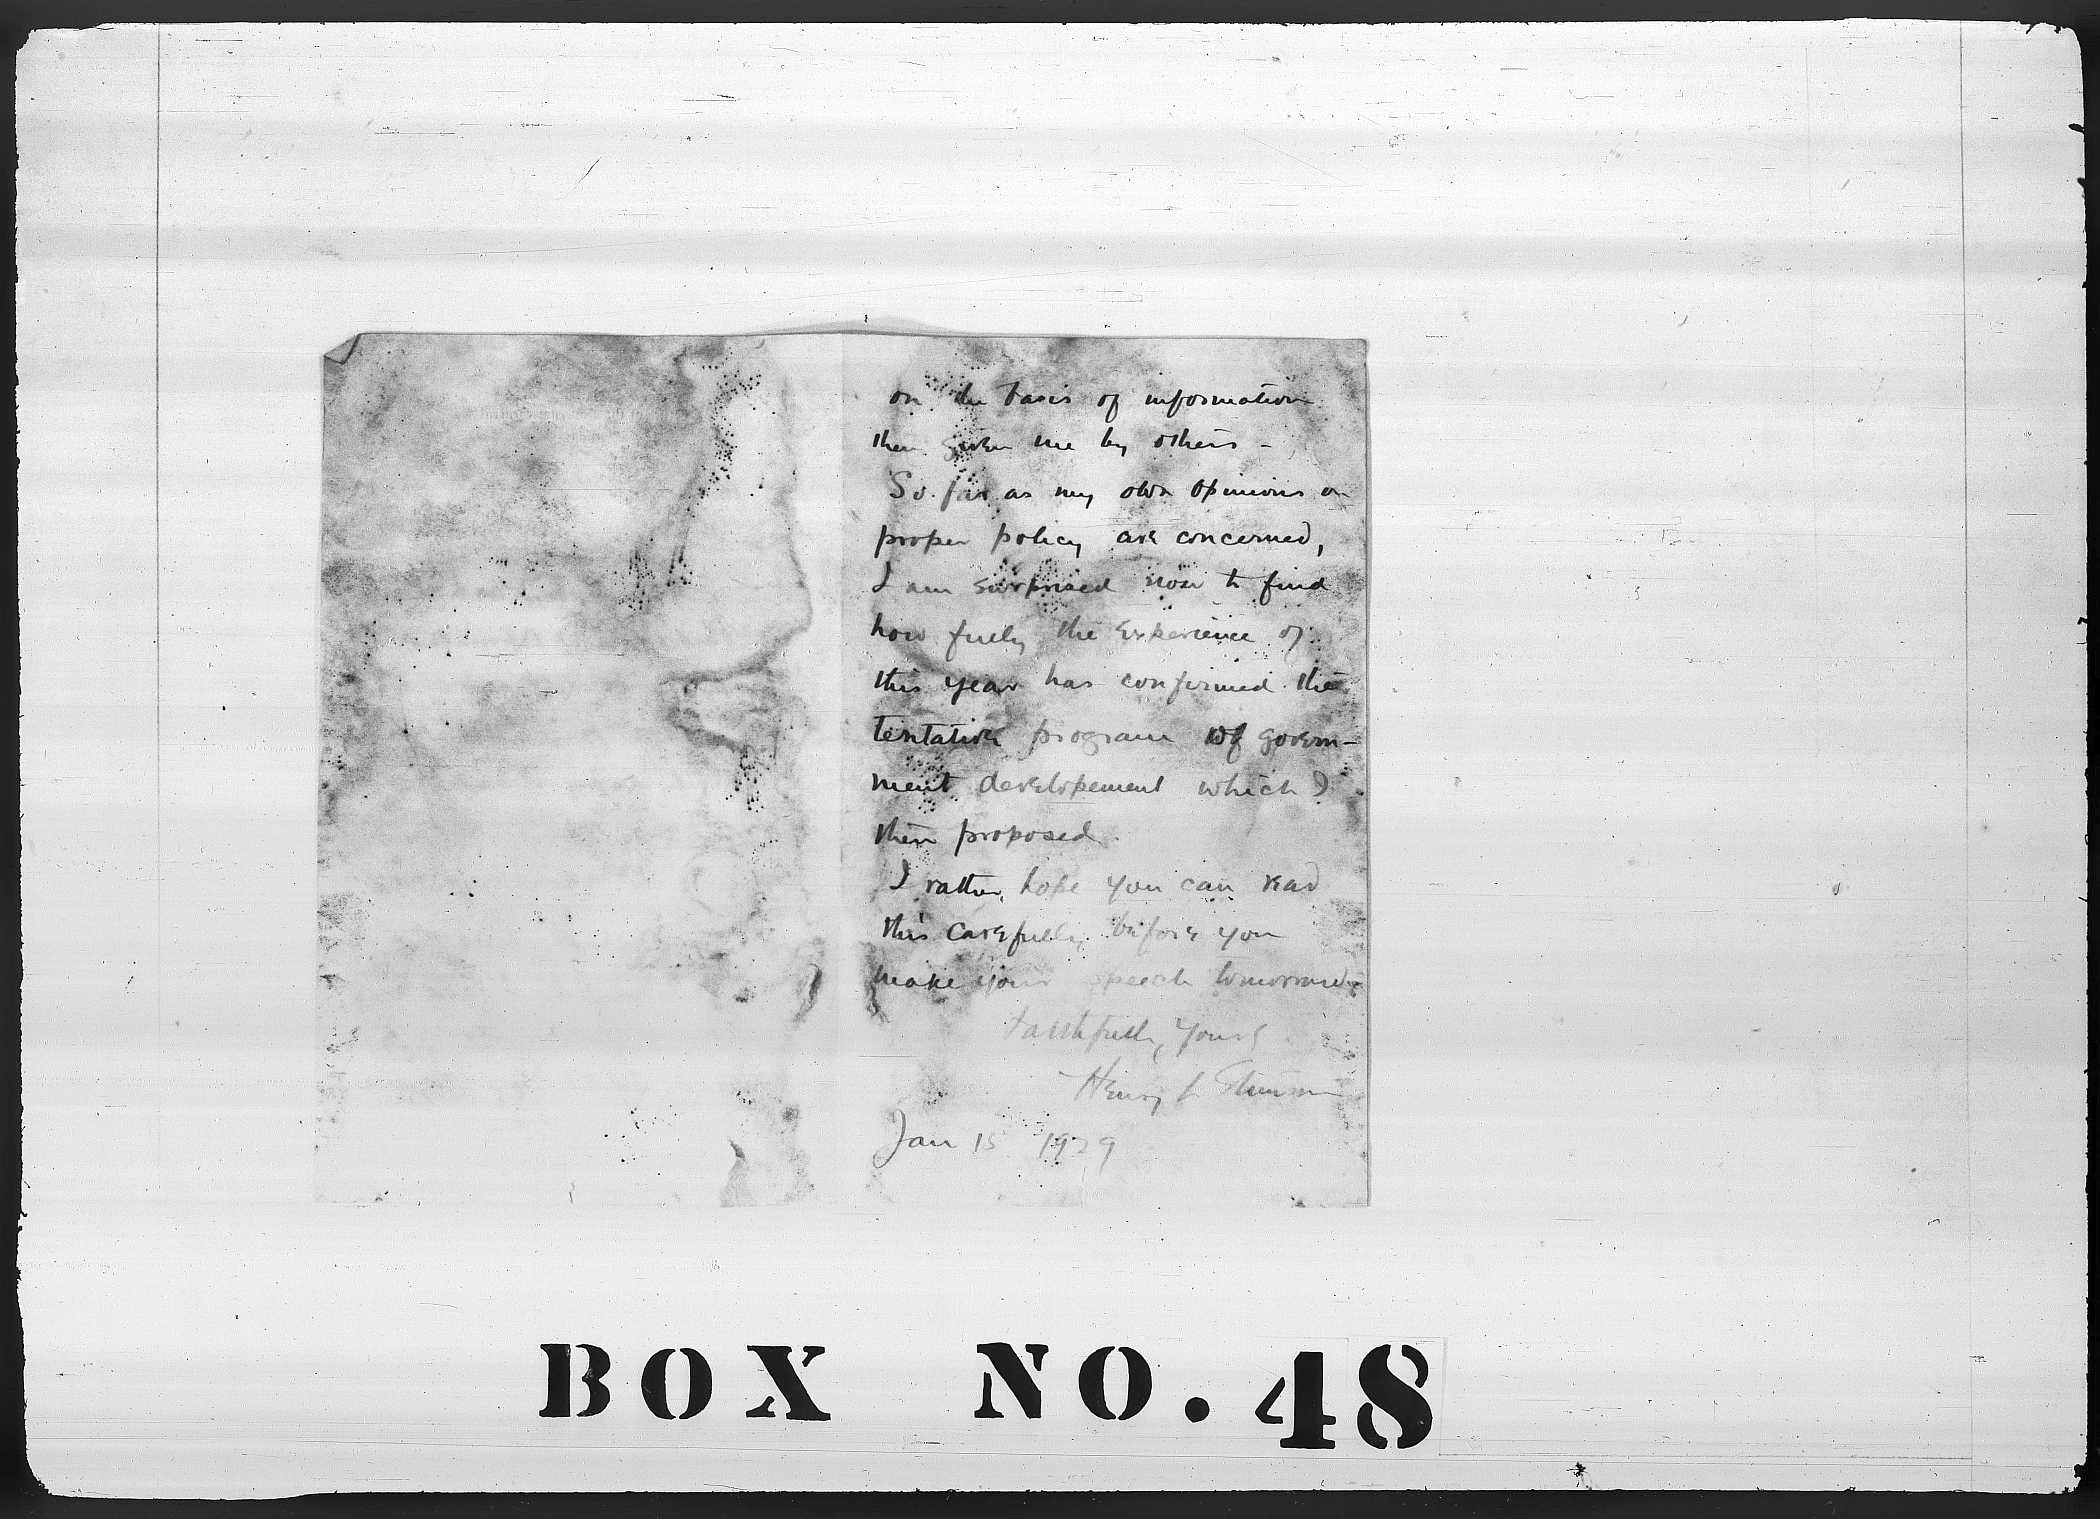 on the basis of information
then given me by others -
So far as my own opinions on
proper policy are concerned,
I am surprised now to find
how fully the experience of
this year has confirmed the
tentative program of govern-
ment developement which I
then proposed.
I rather hope you can read
this carefully before you
make your speech tomorrow.
Faithfully yours
Henry L Stimson
Jan 15 1929
BOX NO. 48